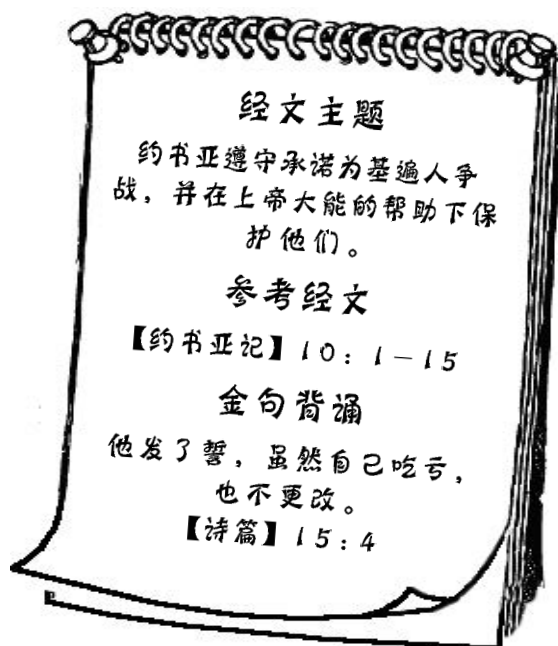 经文主题
约书亚遵守承诺为基遍人争
战，并在上帝大能的帮助下保
护他们。
参考经文
【约书亚记】10：1－15
金句背诵
他发了誓，虽然自己吃亏，
也不更改。
【诗篇】15：4